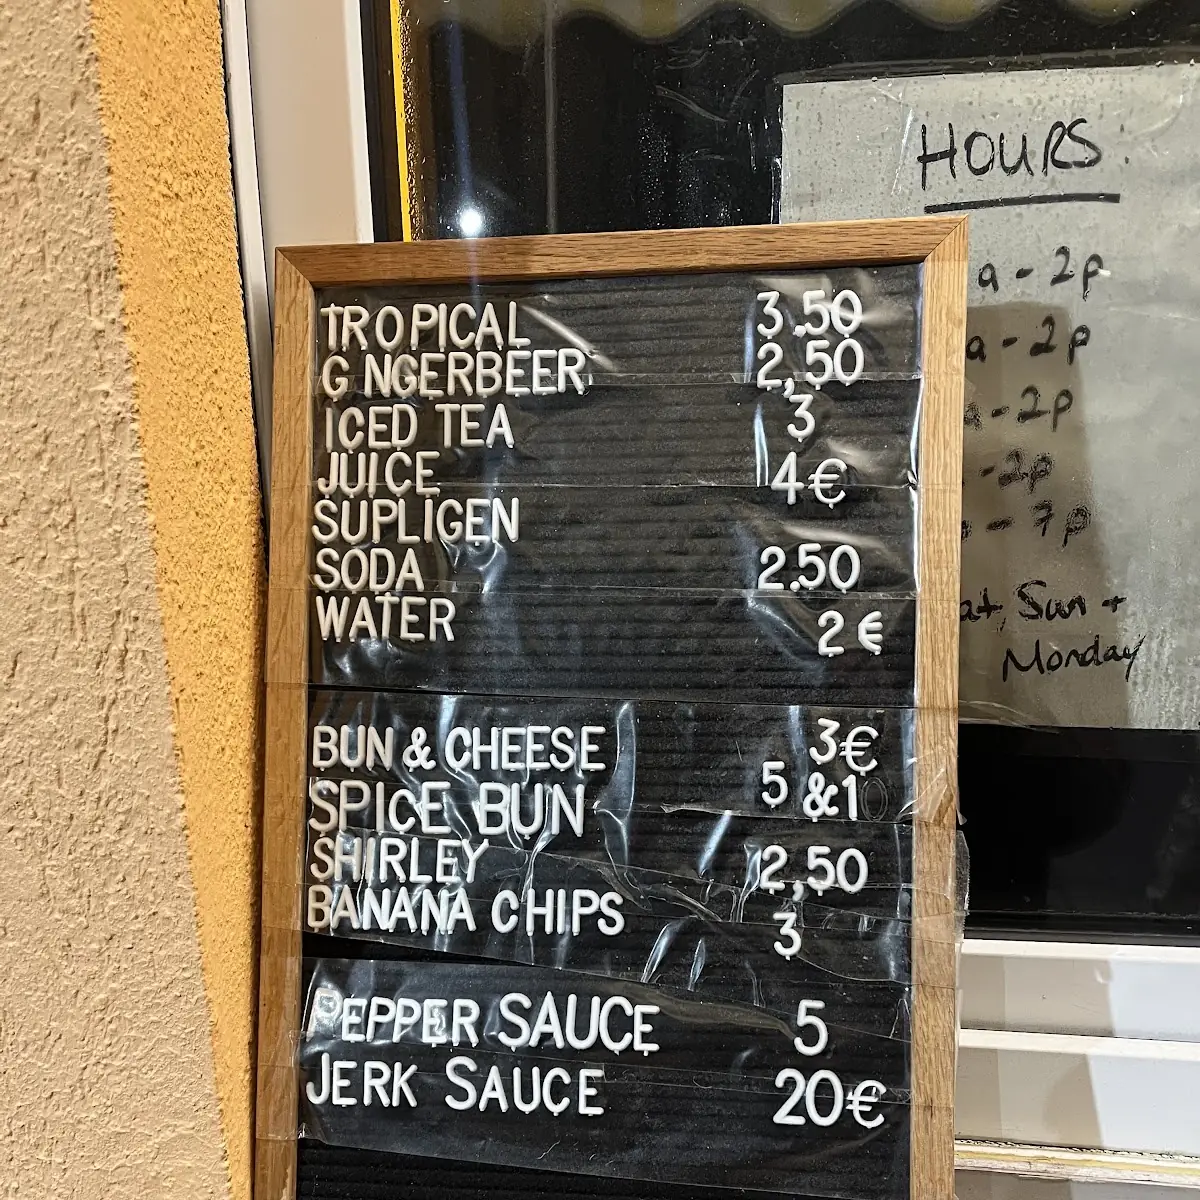 HOURS.
a - 2p
a - 2p
a - 2p
- 2p
- 7p
at, Sun +
Monday
TROPICAL 3.50
G NGERBEER 2,50
ICED TEA 3
JUICE 4€
SUPLIGEN
SODA 2.50
WATER 2€
BUN & CHEESE 3€
SPICE BUN 5 &10
SHIRLEY 2,50
BANANA CHIPS 3
PEPPER SAUCE 5
JERK SAUCE 20€